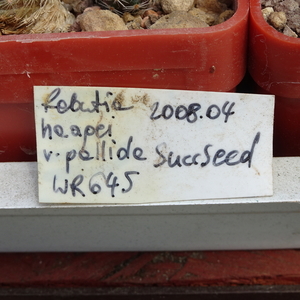 Rebutia 2008.04
haagei
v. pallida SuccSeed
WR645